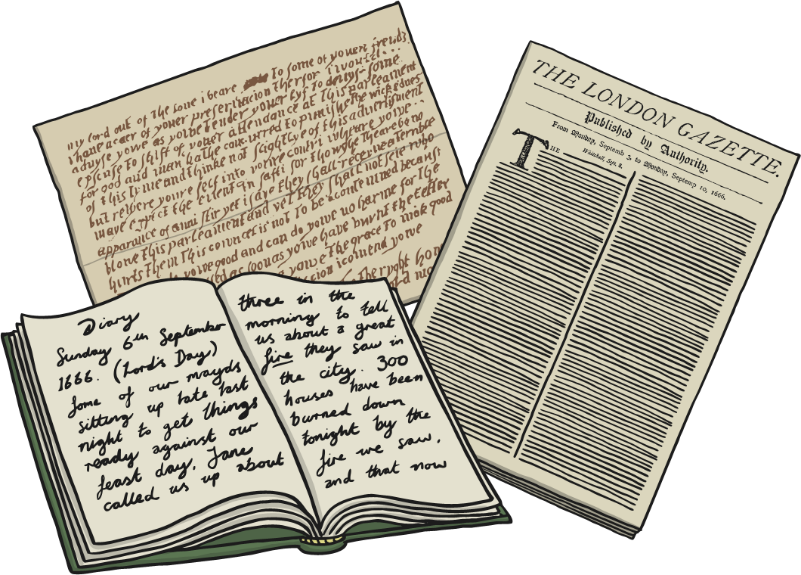 my lord out of the loue i beare to some of youer frends
i haue a caer of youer preseruacion therfor i would
aduyse yowe as yowe tender youer lyf to deuys some
excuse to shift of youer attendance at this parleament
for god and man hathe concurred to punishe the wickednes
of this tyme and thinke not slightlye of this aduertisment
but retyere youre self into youre contri wheare yowe
maye expect the euent in safti for thowghe theare be no
apparance of anni stir yet i saye they shall receyve a terrible
blowe this parleament and yet they shall not seie who
hurts them this cowncel is not to be contemned because
it maye do yowe good and can do yowe no harme for the
as soone as yowe have burnt the letter
yowe the grace to mak good
i comend yowe
the right hon
THE LONDON GAZETTE.
Published by Authority.
From Monday, Septemb 3, to Monday, Septemp 10, 1666.
THE
Diary
Sunday 6th September
1666. (Lord's Day)
Some of our mayds
sitting up late last
night to get things
ready against our
feast day, Jane
called us up about
three in the
morning to tell
us about a great
fire they saw in
the city. 300
houses have been
burned down
tonight by the
fire we saw,
and that now